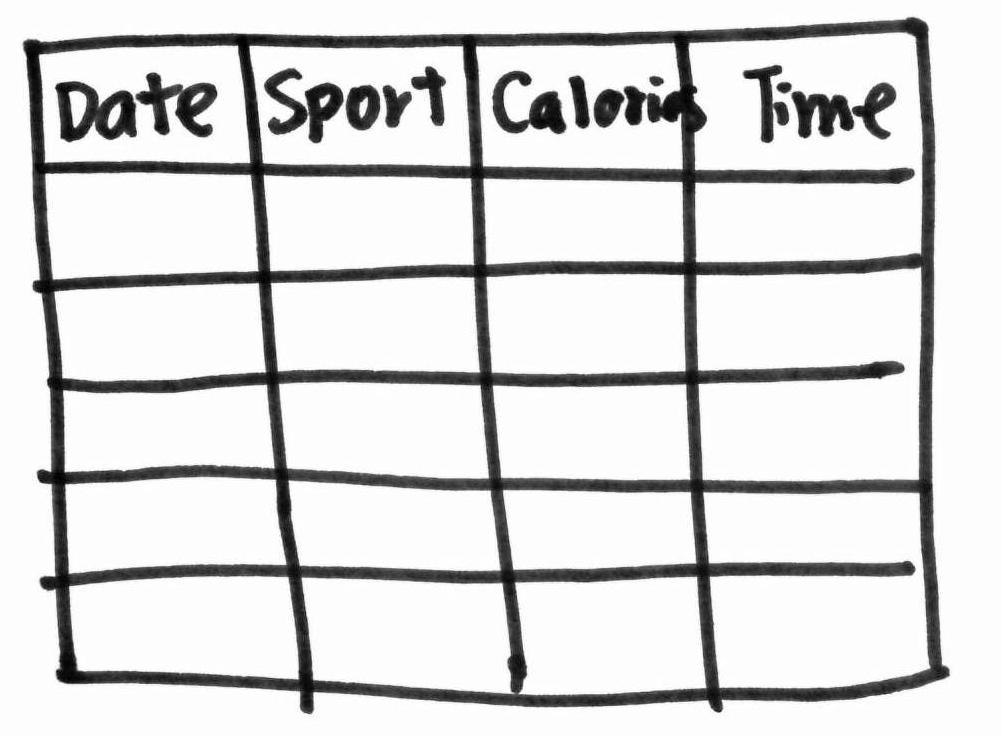 Date Sport Calories Time